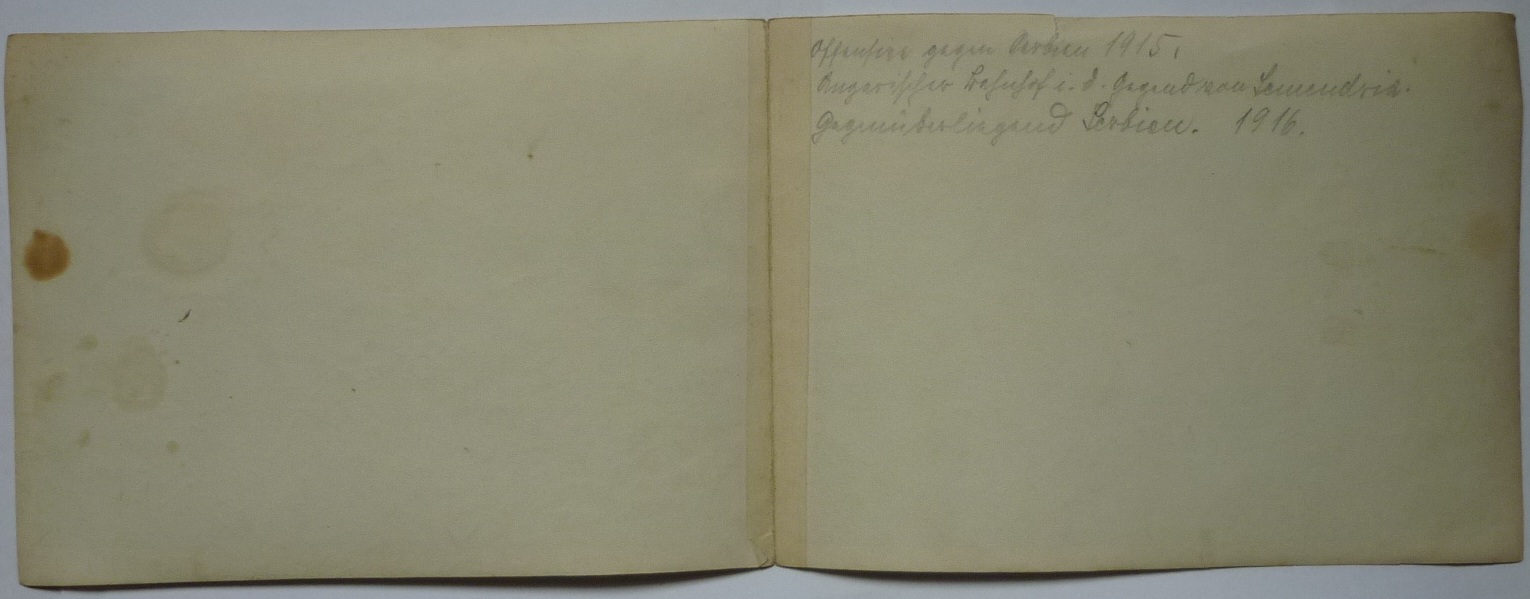 Offensive gegen Serbien 1915.
Ungarischer Bahnhof i. d. Gegend von Semendria.
Gegenüberliegend Serbien. 1916.